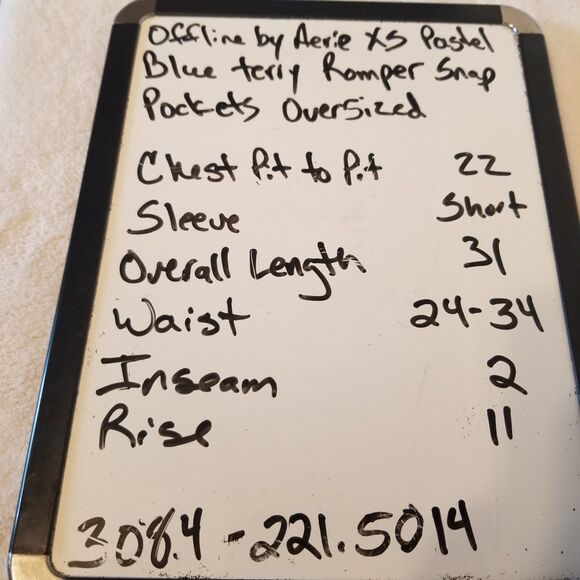 Offline by Aerie XS Pastel
Blue terry Romper Snap
Pockets Oversized
Chest Pit to Pit 22
Sleeve Short
Overall Length 31
Waist 24-34
Inseam 2
Rise 11
308.4-221.5014